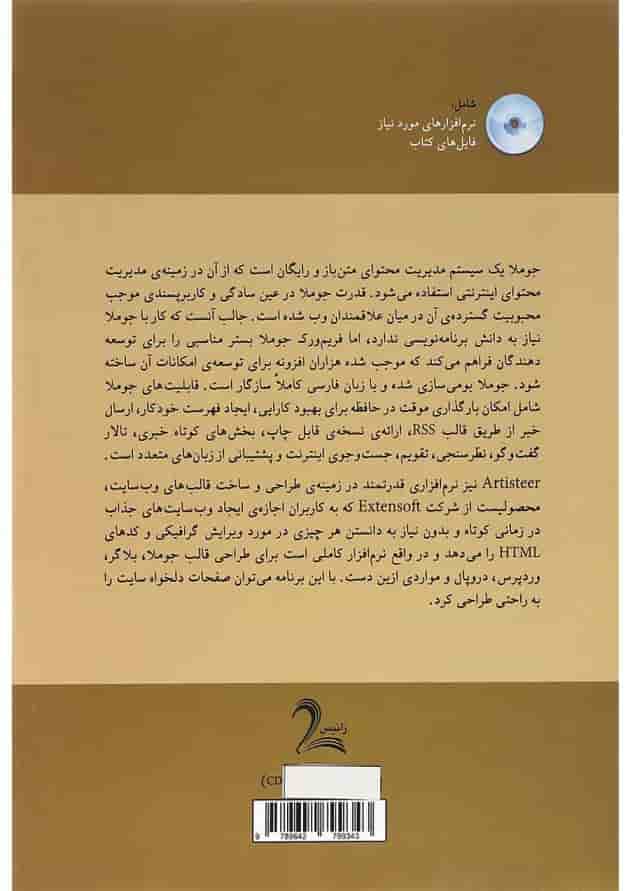 شامل:
نرم‌افزارهای مورد نیاز
فایل‌های کتاب
جوملا یک سیستم مدیریت محتوای متن‌باز و رایگان است که از آن در زمینه‌ی مدیریت
محتوای اینترنتی استفاده می‌شود. قدرت جوملا در عین سادگی و کاربرپسندی موجب
محبوبیت گسترده‌ی آن در میان علاقمندان وب شده است. جالب آنست که کار با جوملا
نیاز به دانش برنامه‌نویسی ندارد، اما فریم‌ورک جوملا بستر مناسبی را برای توسعه
دهندگان فراهم می‌کند که موجب شده هزاران افزونه برای توسعه‌ی امکانات آن ساخته
شود. جوملا بومی‌سازی شده و با زبان فارسی کاملاً سازگار است. قابلیت‌های جوملا
شامل امکان بارگذاری موقت در حافظه برای بهبود کارایی، ایجاد فهرست خودکار، ارسال
خبر از طریق قالب RSS، ارائه‌ی نسخه‌ی قابل چاپ، بخش‌های کوتاه خبری، تالار
گفت‌وگو، نظرسنجی، تقویم، جست‌وجوی اینترنت و پشتیبانی از زبان‌های متعدد است.
Artisteer نیز نرم‌افزاری قدرتمند در زمینه‌ی طراحی و ساخت قالب‌های وب‌سایت،
محصولیست از شرکت Extensoft که به کاربران اجازه‌ی ایجاد وب‌سایت‌های جذاب
در زمانی کوتاه و بدون نیاز به دانستن هر چیزی در مورد ویرایش گرافیکی و کدهای
HTML را می‌دهد و در واقع نرم‌افزار کاملی است برای طراحی قالب جوملا، بلاگر،
وردپرس، دروپال و مواردی ازین دست. با این برنامه می‌توان صفحات دلخواه سایت را
به راحتی طراحی کرد.
رانیس
(CD
9 789642 789343